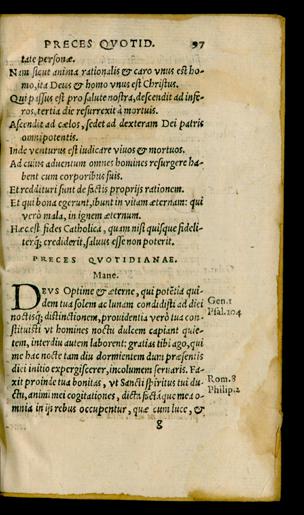 PRECES QVOTID. 97
tate personæ.
Nam sicut anima rationalis & caro vnus est ho-
mo, ita Deus & homo vnus est Christus.
Qui passus est pro salute nostra, descendit ad infe-
ros, tertia die resurrexit à mortuis.
Ascendit ad cælos, sedet ad dexteram Dei patris
omnipotentis.
Inde venturus est iudicare viuos & mortuos.
Ad cuius aduentum omnes homines resurgere ha-
bent cum corporibus suis.
Et reddituri sunt de factis proprijs rationem.
Et qui bona egerunt, ibunt in vitam æternam: qui
verò mala, in ignem æternum.
Hæc est fides Catholica, quam nisi quisque fideli-
terq; crediderit, saluus esse non poterit.
PRECES QVOTIDIANAE.
Mane.
DEVS Optime & æterne, qui potētia qui-
dem tua solem ac lunam condidisti ad diei
noctisq; distinctionem, prouidentia verò tua con-
stituisti vt homines noctu dulcem capiant quie-
tem, interdiu autem laborent: gratias tibi ago, qui
me hac nocte tam diu dormientem dum præsentis
diei initio expergiscerer, incolumem seruaris. Fa-
xit proinde tua bonitas, vt Sancti spiritus tui du-
ctu, animi mei cogitationes, dicta factáque mea o-
mnia in ijs rebus occupentur, quæ cum luce, &
g
Gen. 1
Psal. 104
Rom. 8
Philip. 2